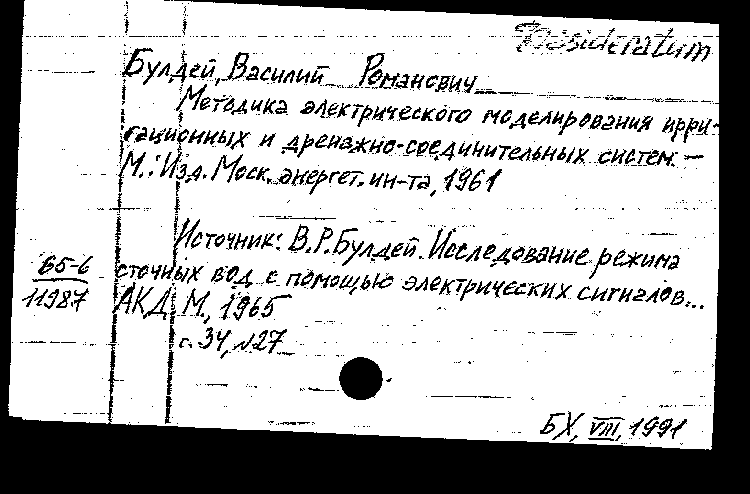 Desideratum
Булдей, Василий Романович
Методика электрического моделирования ирри-
гационных и дренажно-соединительных систем. –
М.: Изд. Моск. энергет. ин-та, 1961
Источник: В.Р. Булдей. Исследование режима
65-6 сточных вод с помощью электрических сигналов...
11987 АКД. М., 1965
с. 34, №27
БХ, VIII, 1991